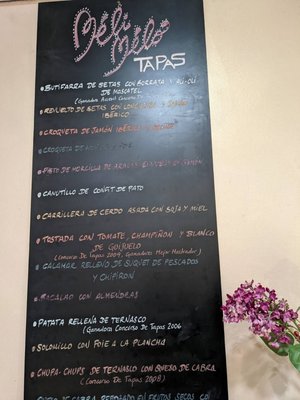 Méli
Mélo
TAPAS
BUTIFARRA DE SETAS CON BORRAJA Y ALI-OLI
DE MOSCATEL
REVUELTO DE SETAS CON LONGANIZA Y JAMÓN
IBÉRICO
CROQUETA DE JAMÓN IBÉRICO
CROQUETA DE
DE MORCILLA DE
CANUTILLO DE CONFIT DE PATO
CARRILLERA DE CERDO ASADA CON SOJA Y MIEL
TOSTADA CON TOMATE, CHAMPIÑON Y BLANCO
DE GUIJUELO
(Concurso De Tapas 2009, Ganadores Mejor Mostrador)
CALAMAR RELLENO DE SUQUET DE PESCADOS
Y CHIPIRON
BACALAO CON ALMENDRAS
PATATA RELLENA DE TERNASCO
(Ganadora Concurso De Tapas 2006
SOLOMILLO CON FOIE A LA PLANCHA
CHUPA-CHUPS DE TERNASCO CON QUESO DE CABRA
(Concurso De Tapas 2008)
DE CABRA REBOZADO EN FRUTOS SECOS CON